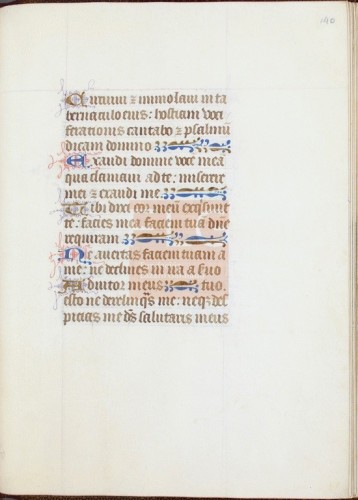 140
Circuivi ⁊ immolavi in ta
bernaculo eius: hostiam voci
ferationis cantabo ⁊ psalmū
dicam domino
Exaudi domine voce meā
qua clamavi ad te: miserere
mei ⁊ exaudi me
Tibi dixit cor meū exqsivit
te: facies mea faciem tuā dn̄e
requiram
Ne avertas faciem tuam a
me: ne declines in ira a suo
Adiutor meus tuo.
esto ne derelinq̄s me: neqꝫ des
picias me ds̄ salutaris meus